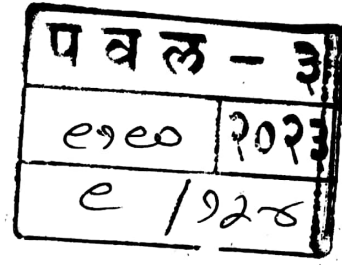 पवल - ३
९१९० २०२३
९ /१२४